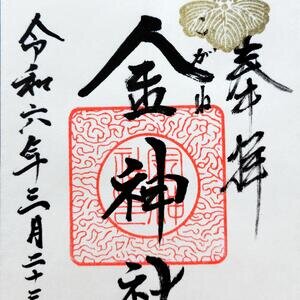 奉拝
こがね
金神社
令和六年三月二十三